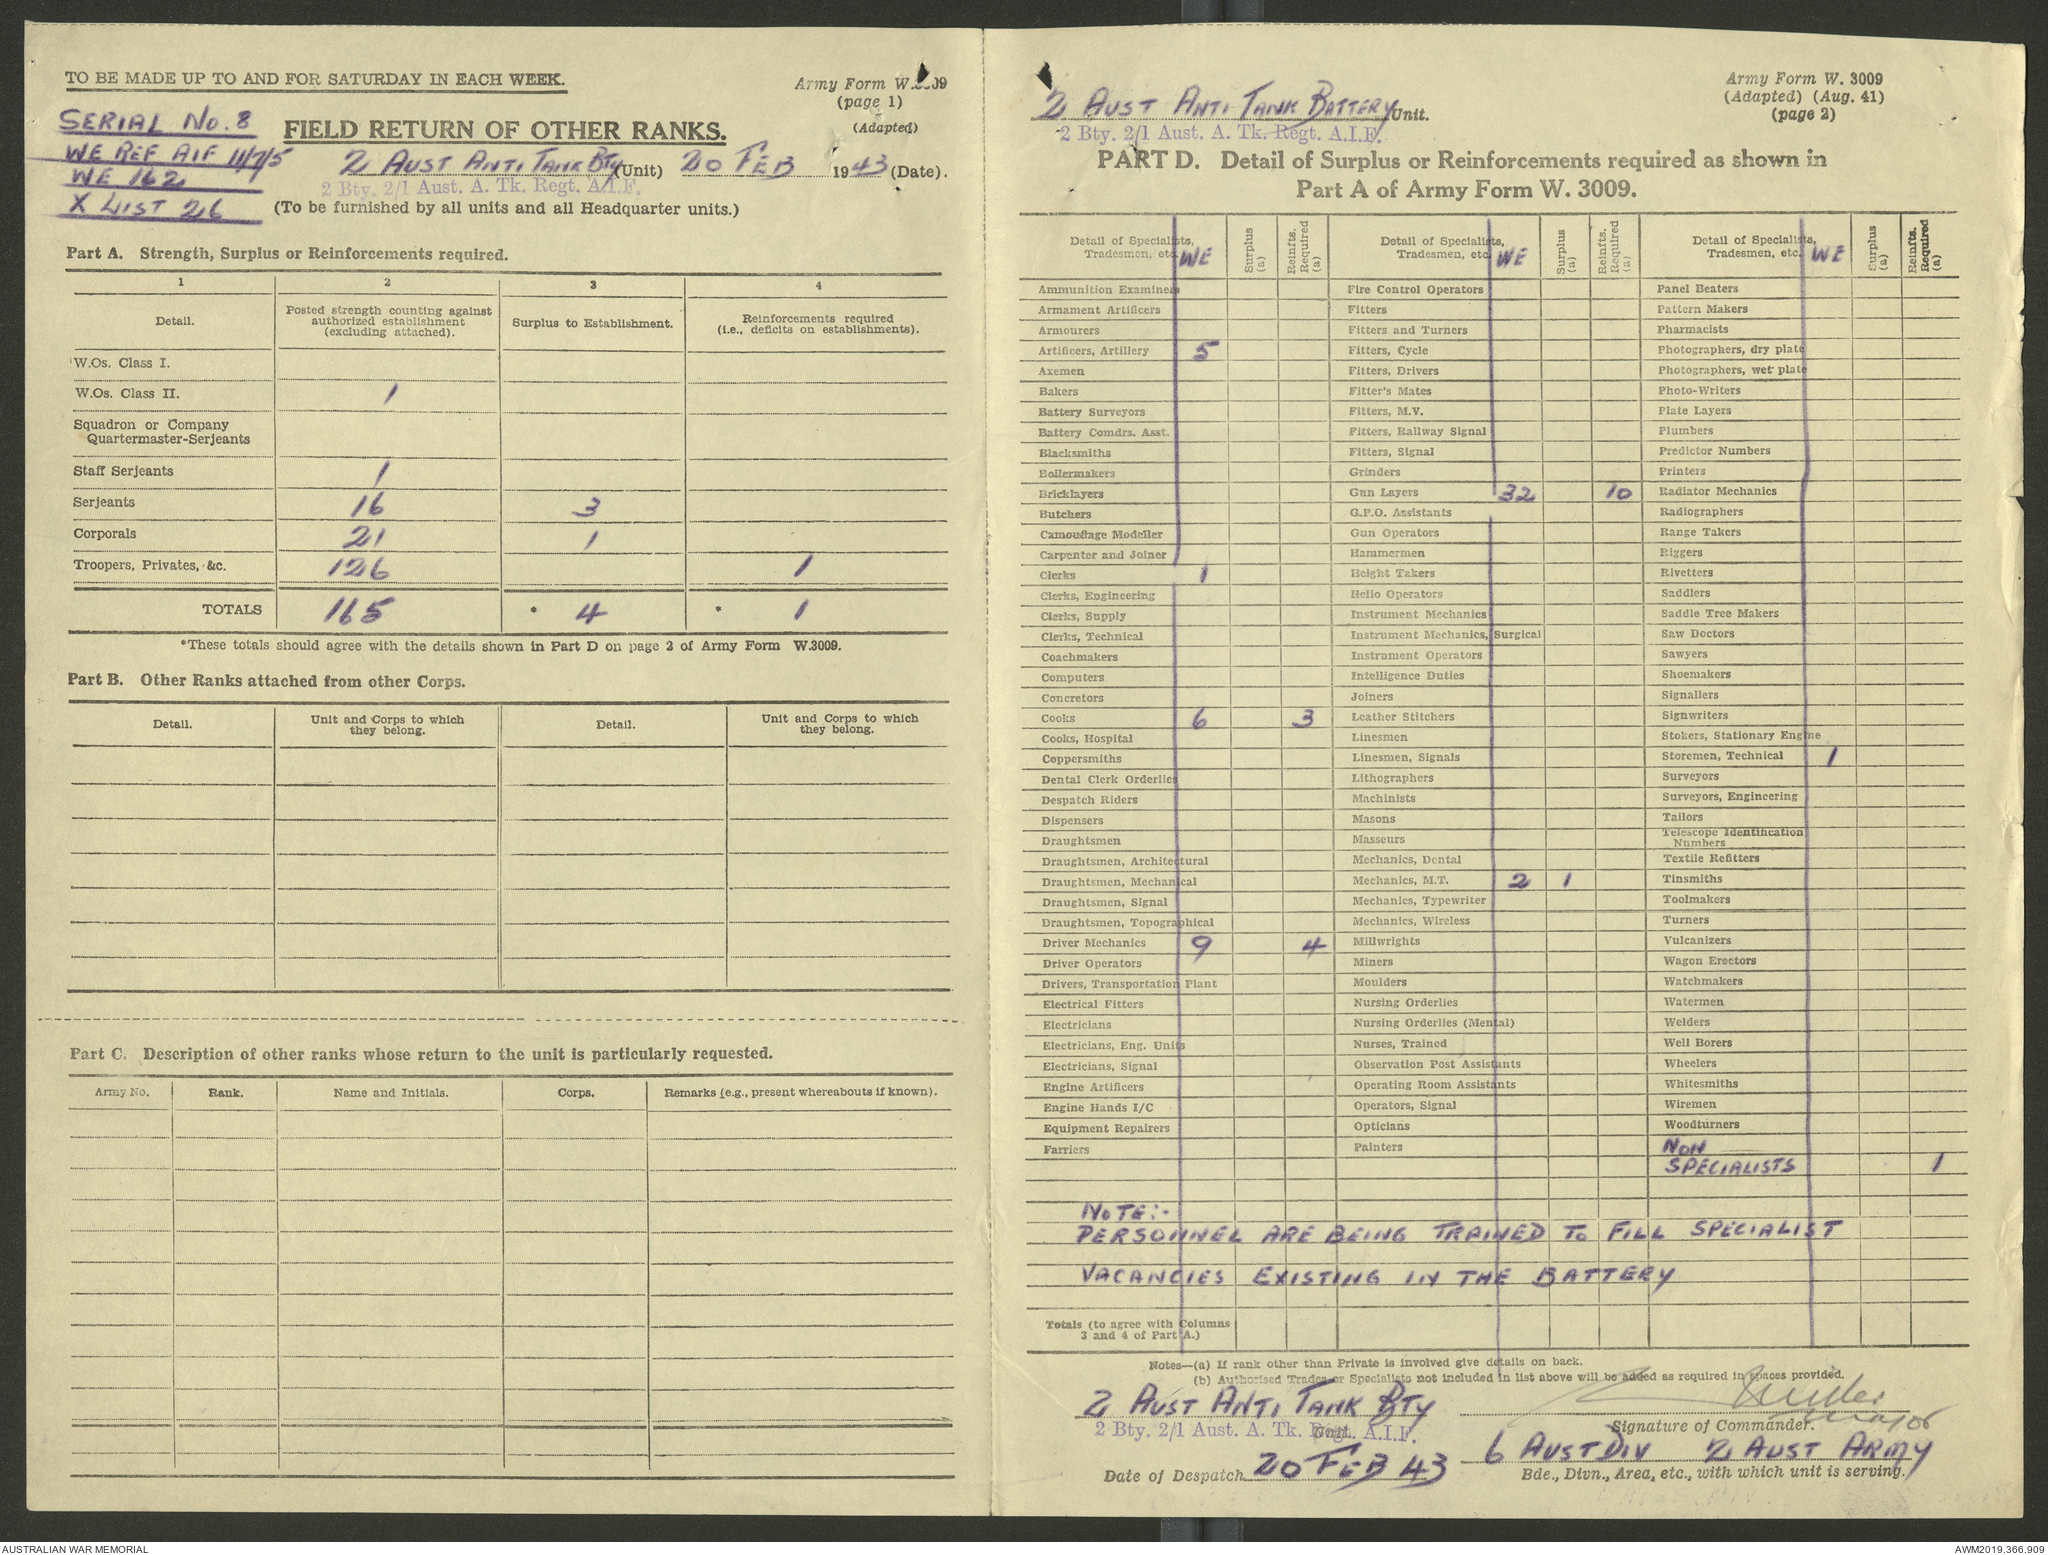 TO BE MADE UP TO AND FOR SATURDAY IN EACH WEEK.
Army Form W.3009
(page 1)
(Adapted)
SERIAL No. 8
FIELD RETURN OF OTHER RANKS.
WE REF AIF 11/7/5
2 AUST ANTI TANK BTY (Unit) 20 FEB 1943 (Date).
WE 162
2 Bty. 2/1 Aust. A. Tk. Regt. A.I.F.
X LIST 26
(To be furnished by all units and all Headquarter units.)
Part A. Strength, Surplus or Reinforcements required.
1 2 3 4
Detail. Posted strength counting against authorized establishment (excluding attached). Surplus to Establishment. Reinforcements required (i.e., deficits on establishments).
W.Os. Class I.
W.Os. Class II. 1
Squadron or Company
Quartermaster-Serjeants
Staff Serjeants 1
Serjeants 16 3
Corporals 21 1
Troopers, Privates, &c. 126 1
TOTALS 165 * 4 * 1
*These totals should agree with the details shown in Part D on page 2 of Army Form W.3009.
Part B. Other Ranks attached from other Corps.
Detail. Unit and Corps to which they belong. Detail. Unit and Corps to which they belong.
Part C. Description of other ranks whose return to the unit is particularly requested.
Army No. Rank. Name and Initials. Corps. Remarks (e.g., present whereabouts if known).
Army Form W. 3009
(Adapted) (Aug. 41)
(page 2)
2 AUST ANTI TANK BATTERY Unit.
2 Bty. 2/1 Aust. A. Tk. Regt. A.I.F.
PART D. Detail of Surplus or Reinforcements required as shown in
Part A of Army Form W. 3009.
Detail of Specialists, Tradesmen, etc. WE Surplus (a) Reinfts. Required (a)
Ammunition Examiners
Armament Artificers
Armourers
Artificers, Artillery 5
Axemen
Bakers
Battery Surveyors
Battery Comdrs. Asst.
Blacksmiths
Boilermakers
Bricklayers
Butchers
Camouflage Modeller
Carpenter and Joiner
Clerks 1
Clerks, Engineering
Clerks, Supply
Clerks, Technical
Coachmakers
Computers
Concretors
Cooks 6 3
Cooks, Hospital
Coppersmiths
Dental Clerk Orderlies
Despatch Riders
Dispensers
Draughtsmen
Draughtsmen, Architectural
Draughtsmen, Mechanical
Draughtsmen, Signal
Draughtsmen, Topographical
Driver Mechanics 9 4
Driver Operators
Drivers, Transportation Plant
Electrical Fitters
Electricians
Electricians, Eng. Units
Electricians, Signal
Engine Artificers
Engine Hands I/C
Equipment Repairers
Farriers
Detail of Specialists, Tradesmen, etc. WE Surplus (a) Reinfts. Required (a)
Fire Control Operators
Fitters
Fitters and Turners
Fitters, Cycle
Fitters, Drivers
Fitter's Mates
Fitters, M.V.
Fitters, Railway Signal
Fitters, Signal
Grinders
Gun Layers 32 10
G.P.O. Assistants
Gun Operators
Hammermen
Height Takers
Hello Operators
Instrument Mechanics
Instrument Mechanics, Surgical
Instrument Operators
Intelligence Duties
Joiners
Leather Stitchers
Linesmen
Linesmen, Signals
Lithographers
Machinists
Masons
Masseurs
Mechanics, Dental
Mechanics, M.T. 2 1
Mechanics, Typewriter
Mechanics, Wireless
Millwrights
Miners
Moulders
Nursing Orderlies
Nursing Orderlies (Mental)
Nurses, Trained
Observation Post Assistants
Operating Room Assistants
Operators, Signal
Opticians
Painters
Detail of Specialists, Tradesmen, etc. WE Surplus (a) Reinfts. Required (a)
Panel Beaters
Pattern Makers
Pharmacists
Photographers, dry plate
Photographers, wet plate
Photo-Writers
Plate Layers
Plumbers
Predictor Numbers
Printers
Radiator Mechanics
Radiographers
Range Takers
Riggers
Rivetters
Saddlers
Saddle Tree Makers
Saw Doctors
Sawyers
Shoemakers
Signallers
Signwriters
Stokers, Stationary Engine
Storemen, Technical 1
Surveyors
Surveyors, Engineering
Tailors
Telescope Identification
Numbers
Textile Refitters
Tinsmiths
Toolmakers
Turners
Vulcanizers
Wagon Erectors
Watchmakers
Watermen
Welders
Well Borers
Wheelers
Whitesmiths
Wiremen
Woodturners
NON
SPECIALISTS 1
NOTE:-
PERSONNEL ARE BEING TRAINED TO FILL SPECIALIST
VACANCIES EXISTING IN THE BATTERY
Totals (to agree with Columns
3 and 4 of Part A.)
Notes—(a) If rank other than Private is involved give details on back.
(b) Authorised Trades or Specialists not included in list above will be added as required in spaces provided.
2 AUST ANTI TANK BTY
Major
Signature of Commander.
2 Bty. 2/1 Aust. A. Tk. Regt. A.I.F.
Unit
6 AUST DIV 2 AUST ARMY
Date of Despatch 20 FEB 43
Bde., Divn., Area, etc., with which unit is serving.
AUSTRALIAN WAR MEMORIAL
AWM2019.366.909